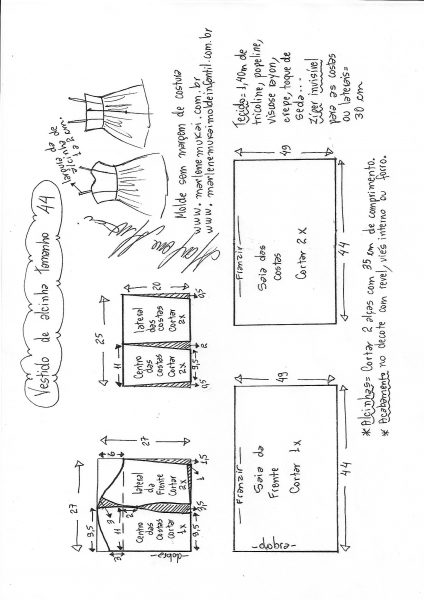 Vestido de alcinha Tamanho 44
largura da
alcinha de
1 a 2 cm.
Molde sem margem de costura
www.marlenemukai.com.br
www.marlenemukaimoldeinfantil.com.br
Tecido = 1,40m de
tricoline, popeline,
viscose rayon,
crepe, toque de
seda...
zíper invisível
para as costas
ou laterais =
30 cm
27
9,5
6
3
11
3
2
27
Centro
das
costas
cortar
1x
lateral
da
Frente
Cortar
2x
dobra
9,5
3,5
1
1,5
25
11
20
Centro
das
costas
Cortar
2x
lateral
das
costas
Cortar
2x
0,5
9,5
2
0,5
Franzir
49
Saia da
Frente
Cortar 1x
dobra
44
Franzir
49
Saia das
Costas
Cortar 2x
44
* Alcinhas = Cortar 2 alças com 35 cm de comprimento.
* Acabamento no decote com revel, viés interno ou forro.